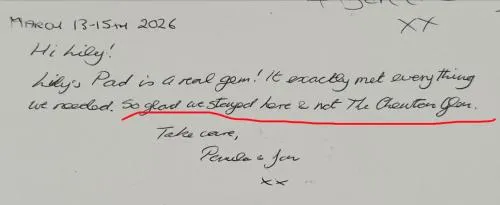 MARCH 13-15TH 2026
xx
Hi Lily!
Lily's Pad is a real gem! It exactly met everything
we needed. So glad we stayed here & not The Chewton Glen.
Take care,
xx